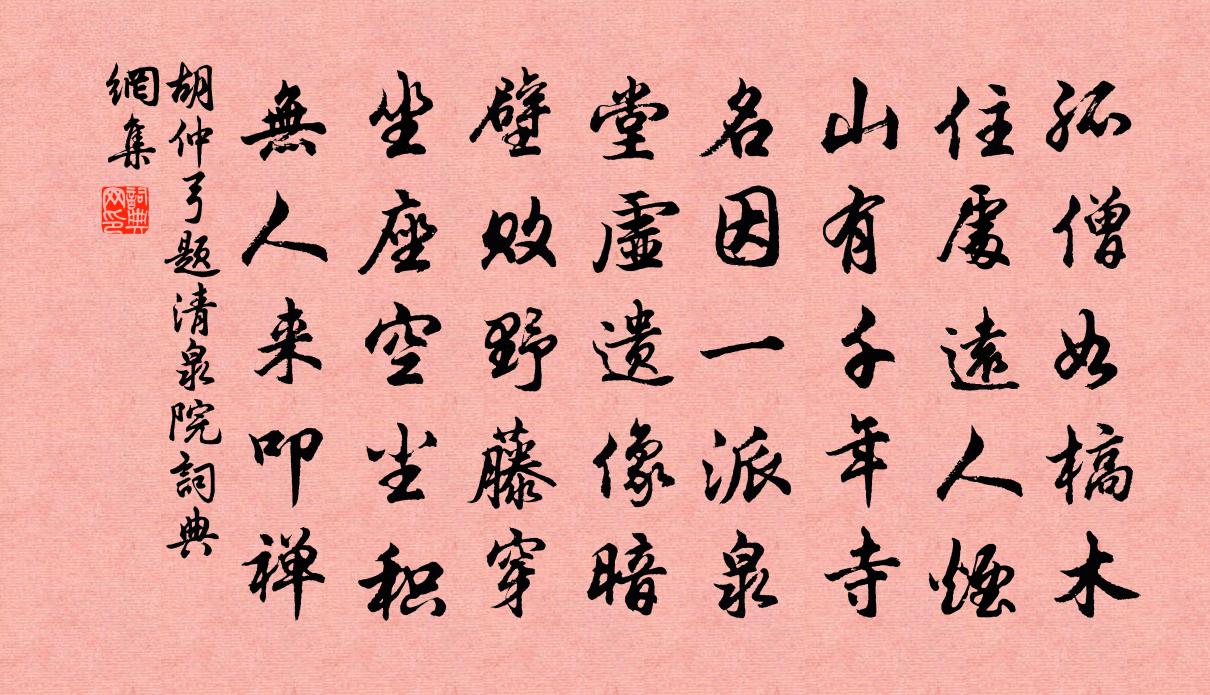 孤僧如槁木
住處遠人煙
山有千年寺
名因一派泉
堂虛遺像暗
壁敗野藤穿
坐座空尘积
無人来叩禅
胡仲弓题清泉院詞典
網集
詞典
网印